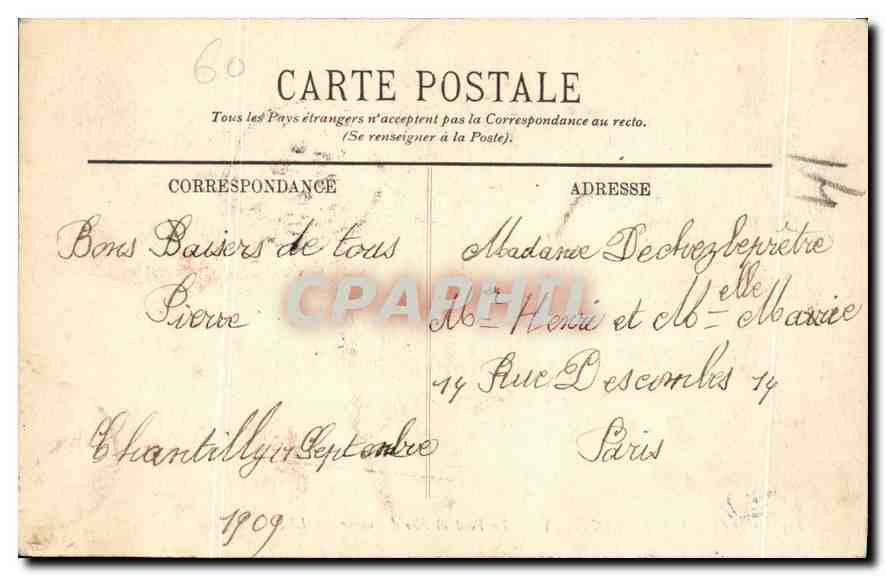 60
CARTE POSTALE
Tous les Pays étrangers n'acceptent pas la Correspondance au recto.
(Se renseigner à la Poste).
CORRESPONDANCE
Bons Baisers de tous
Pierre
Chantilly 17 Septembre
1909
ADRESSE
Madame Dechezleprêtre
Mr Henri et Melle Marie
14 Rue Descombes 14
Paris
CPARHTI